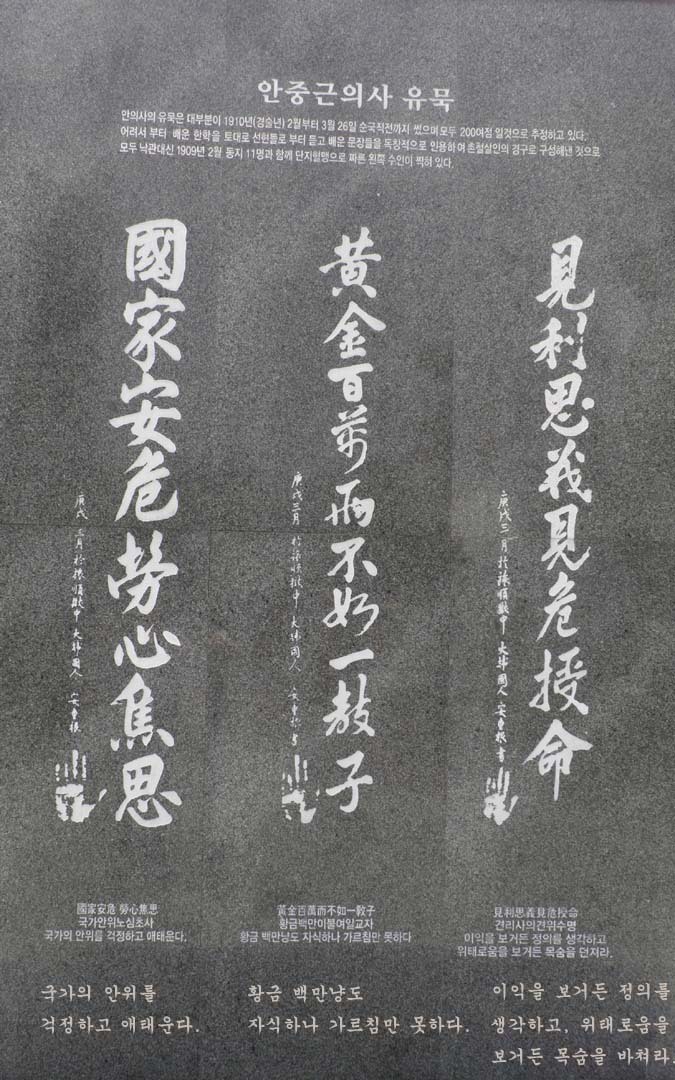 안중근의사 유묵
안의사의 유묵은 대부분이 1910년(경술년) 2월부터 3월 26일 순국직전까지 썼으며 모두 200여점 일것으로 추정하고 있다.
어려서 부터 배운 한학을 토대로 선현들로 부터 듣고 배운 문장들을 독창적으로 인용하여 촌철살인의 경구로 구성해낸 것으로
모두 낙관대신 1909년 2월 동지 11명과 함께 단지혈맹으로 짜른 왼쪽 수인이 찍혀 있다.
國家安危勞心焦思
庚戌三月 於旅順獄中 大韓國人 安重根
黃金百萬兩不如一敎子
庚戌三月 於旅順獄中 大韓國人 安重根 書
見利思義見危授命
庚戌三月 於旅順獄中 大韓國人 安重根 書
國家安危 勞心焦思
국가안위노심초사
국가의 안위를 걱정하고 애태운다.
黃金百萬而不如一敎子
황금백만이불여일교자
황금 백만냥도 자식하나 가르침만 못하다
見利思義見危授命
견리사의견위수명
이익을 보거든 정의를 생각하고
위태로움을 보거든 목숨을 던져라.
국가의 안위를
걱정하고 애태운다.
황금 백만냥도
자식하나 가르침만 못하다.
이익을 보거든 정의를
생각하고, 위태로움을
보거든 목숨을 바쳐라.